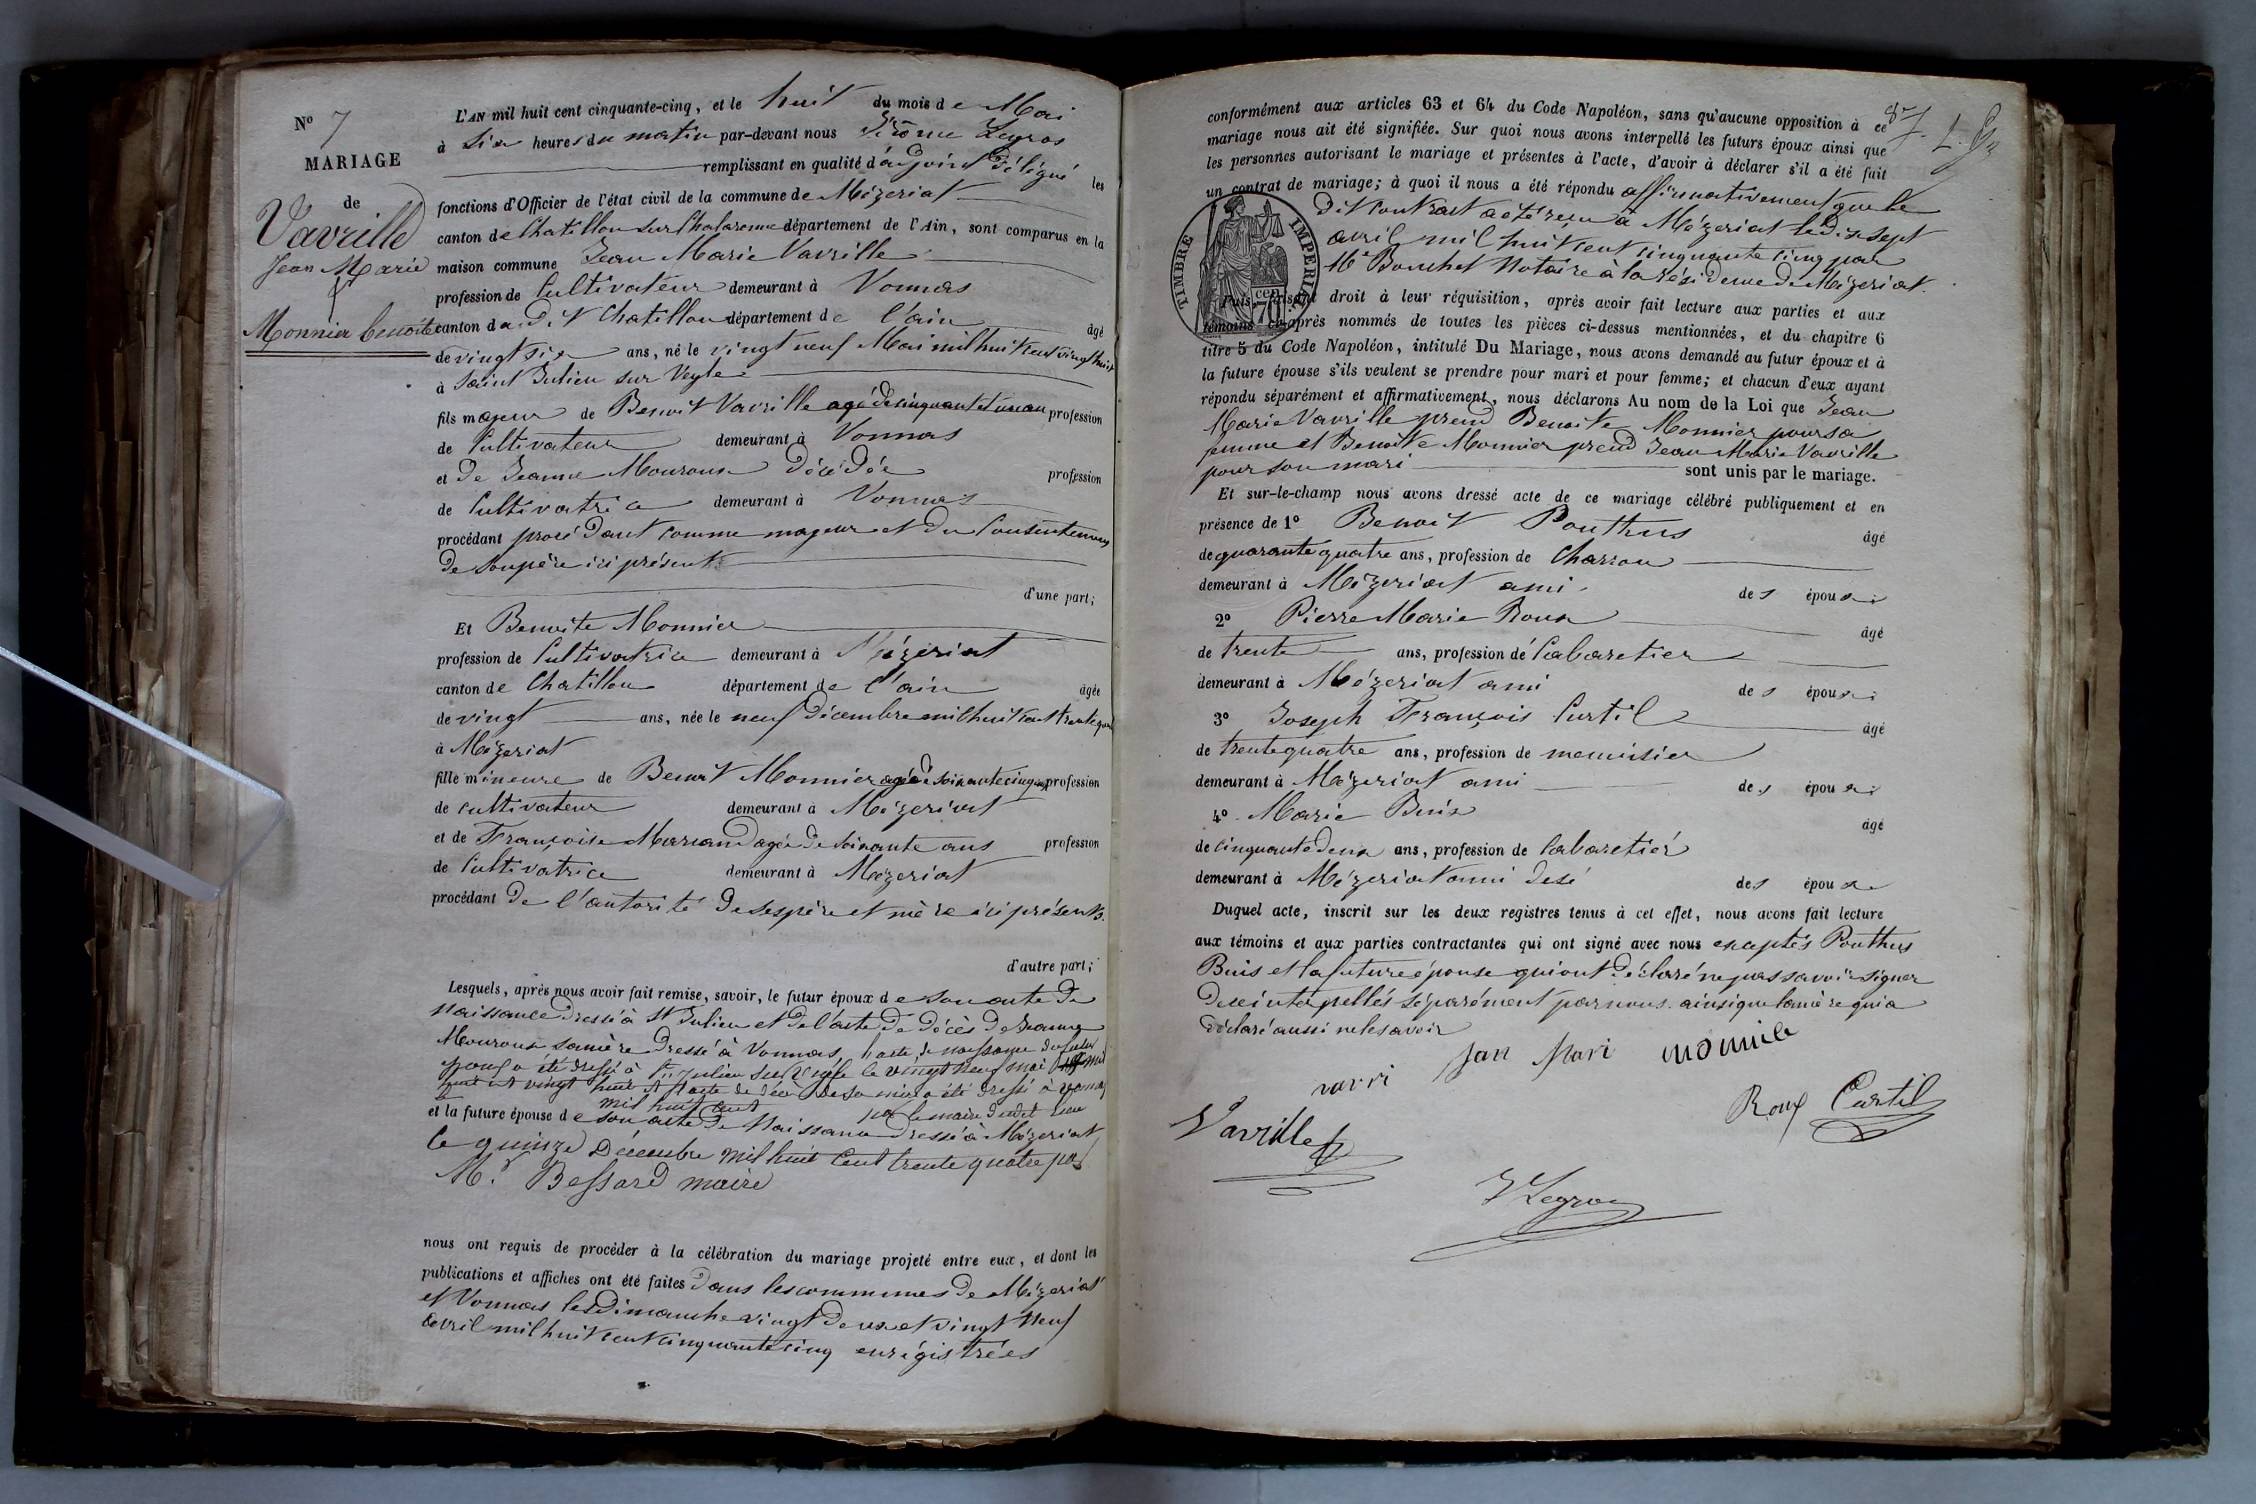 N° 7
MARIAGE
de
Vavrille
Jean Marie
et
Monnier benoite
L'AN mil huit cent cinquante-cinq, et le huit du mois de Mai
à six heures du matin par-devant nous Jérôme Legros
remplissant en qualité d'adjoint délégué les
fonctions d'Officier de l'état civil de la commune de Mézeriat
canton de Chatillon sur Chalaronne département de l'Ain, sont comparus en la
maison commune Jean Marie Vavrille
profession de Cultivateur demeurant à Vonnas
canton du dit Chatillon département de l'ain âgé
de vingt six ans, né le vingt neuf Mai mil huit cent vingt huit
à Saint Julien sur Veyle
fils majeur de Benoit Vavrille agé de cinquante et un an profession
de Cultivateur demeurant à Vonnas
et de Jeanne Mouroux Décédée profession
de Cultivatrice demeurant à Vonnas
procédant procédant comme majeur et du Consentement
de son père ici présent
d'une part;
Et Benoite Monnier
profession de Cultivatrice demeurant à Mézeriat
canton de Chatillon département de l'ain âgée
de vingt ans, née le neuf Décembre mil huit cent trente quatre
à Mézeriat
fille mineure de Benoit Monnier agé de soixante cinq ans profession
de cultivateur demeurant à Mézeriat
et de Françoise Marcand agée de soixante ans profession
de Cultivatrice demeurant à Mézeriat
procédant de l'autorité de ses père et mère ici présents
d'autre part;
Lesquels, après nous avoir fait remise, savoir, le futur époux de son acte de
Naissance dressé à St Julien et de l'acte de décès de Jeanne
Mouroux sa mère dressé à Vonnas, l'acte de naissance du futur
époux a été dressé à St Julien sur Veyle le vingt neuf mai mil
huit cent vingt huit et l'acte de décès de sa mère a été dressé à Vonnas
mil huit cent par le maire dudit lieu
et la future épouse de son acte de Naissance dressé à Mézeriat
le quinze Décembre mil huit Cent trente quatre par
Mr Bessard maire
nous ont requis de procéder à la célébration du mariage projeté entre eux, et dont les
publications et affiches ont été faites dans les communes de Mézeriat
et Vonnas les Dimanche vingt deux et vingt Neuf
avril mil huit cent cinquante cinq enrégistrées
87. L. G
conformément aux articles 63 et 64 du Code Napoléon, sans qu'aucune opposition à ce
mariage nous ait été signifiée. Sur quoi nous avons interpellé les futurs époux ainsi que
les personnes autorisant le mariage et présentes à l'acte, d'avoir à déclarer s'il a été fait
un contrat de mariage; à quoi il nous a été répondu affirmativement que le
dit contrat a été reçu à Mézeriat le dix sept
avril mil huit cent cinquante cinq par
Me Bouchet Notaire à la résidence de Mézeriat
TIMBRE IMPERIAL
cen 70
Puis, faisant droit à leur réquisition, après avoir fait lecture aux parties et aux
témoins ci-après nommés de toutes les pièces ci-dessus mentionnées, et du chapitre 6
titre 5 du Code Napoléon, intitulé Du Mariage, nous avons demandé au futur époux et à
la future épouse s'ils veulent se prendre pour mari et pour femme; et chacun d'eux ayant
répondu séparément et affirmativement, nous déclarons Au nom de la Loi que Jean
Marie Vavrille prend Benoite Monnier pour sa
femme et Benoite Monnier prend Jean Marie Vavrille
pour son mari sont unis par le mariage.
Et sur-le-champ nous avons dressé acte de ce mariage célébré publiquement et en
présence de 1° Benoit Pouthus âgé
de quarante quatre ans, profession de Charron
demeurant à Mézeriat ami des époux
2° Pierre Marie Roux âgé
de trente ans, profession de Cabaretier
demeurant à Mézeriat ami des époux
3° Joseph François Curtil âgé
de trente quatre ans, profession de menuisier
demeurant à Mézeriat ami des époux
4° Marie Buis âgé
de cinquante deux ans, profession de Cabaretier
demeurant à Mézeriat ami des époux
Duquel acte, inscrit sur les deux registres tenus à cet effet, nous avons fait lecture
aux témoins et aux parties contractantes qui ont signé avec nous exceptés Pouthus
Buis et la future épouse qui ont déclaré ne pas savoir signer
de ce interpellés séparément par nous. ainsi que la mère qui a
déclaré aussi ne le savoir
varri jan mari monnie
Vavrille
Roux Curtil
J Legros